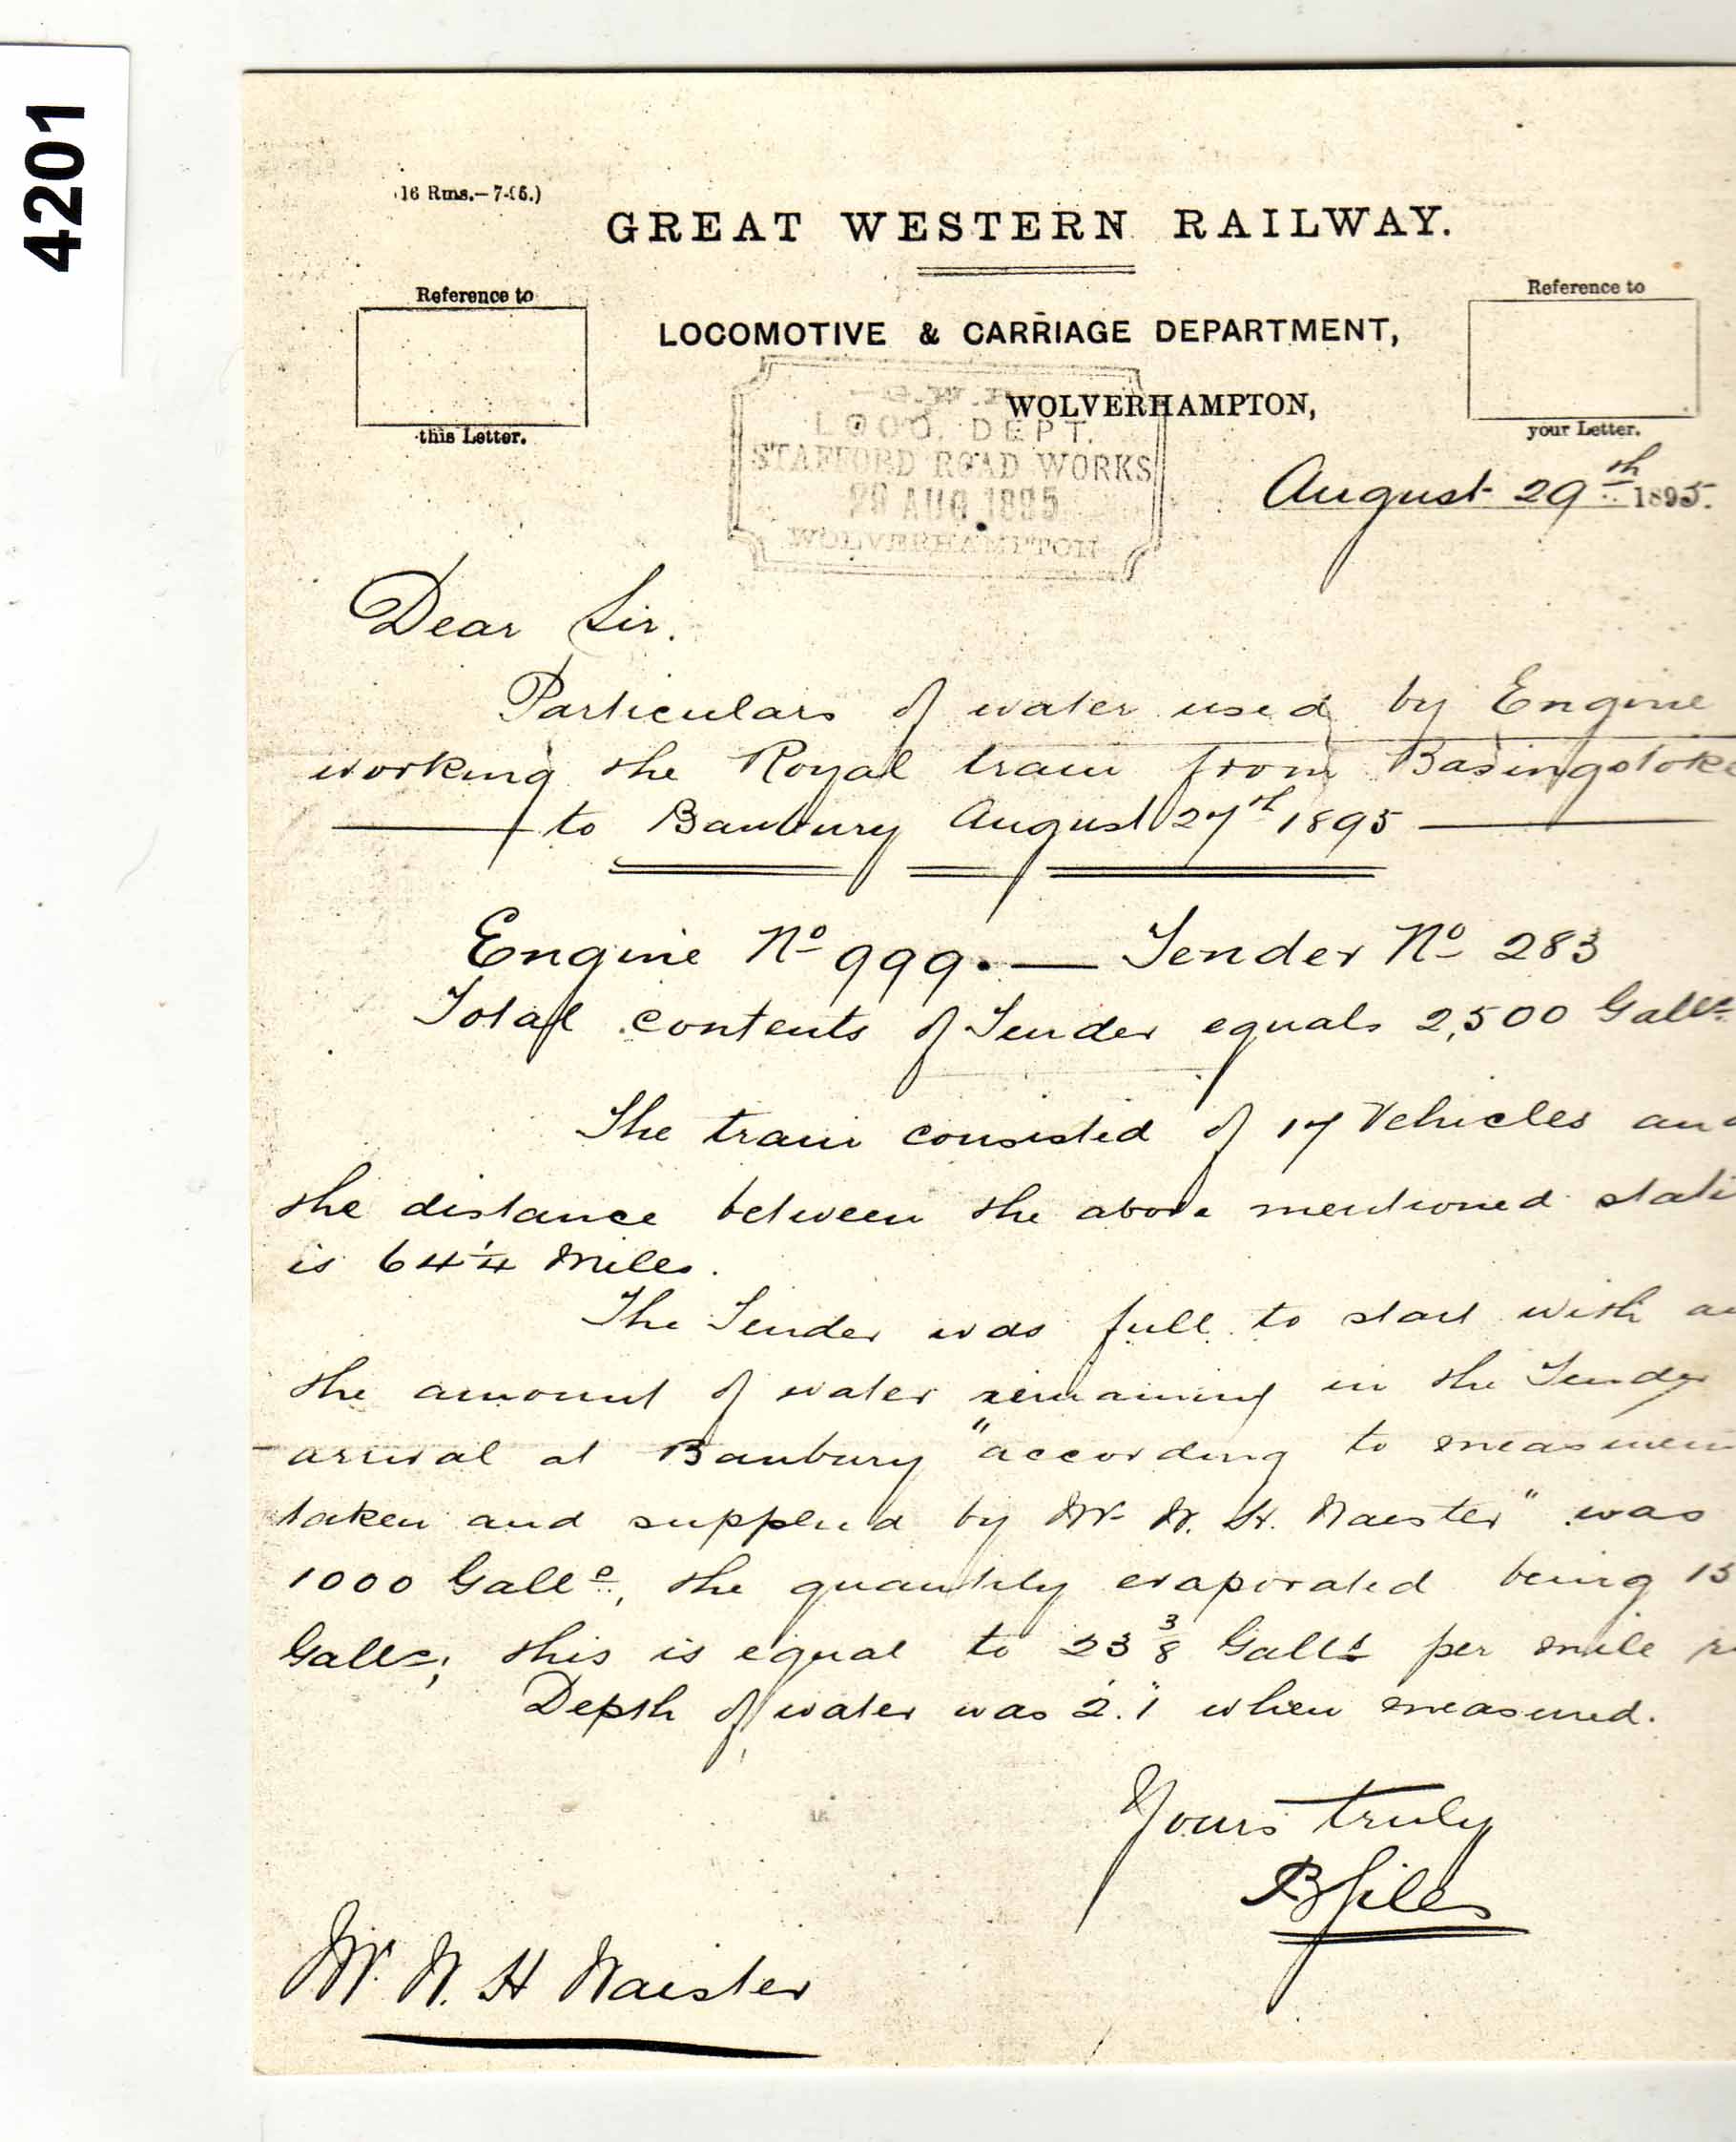 4201
(16 Rms.—7-95.)
GREAT WESTERN RAILWAY.
Reference to
this Letter.
Reference to
your Letter.
LOCOMOTIVE & CARRIAGE DEPARTMENT,
WOLVERHAMPTON,
G.W.R.
LOCO. DEPT.
STAFFORD ROAD WORKS
29 AUG 1895
WOLVERHAMPTON
August 29th 1895.
Dear Sir.
Particulars of water used by Engine
working the Royal train from Basingstoke
to Banbury August 27th 1895
Engine No 999. — Tender No 283
Total contents of Tender equals 2,500 Galls
The train consisted of 17 Vehicles and
the distance between the above mentioned stati
is 64 1/4 Miles.
The Tender was full to start with an
the amount of water remaining in the Tender
arrival at Banbury "according to measurem
taken and supplied by Mr W. H. Waister" was
1000 Galls, the quantity evaporated being 15
Galls; this is equal to 23 3/8 Galls per mile r
Depth of water was 2'.1" when measured.
Yours truly
B Giles
Mr. W. H Waister